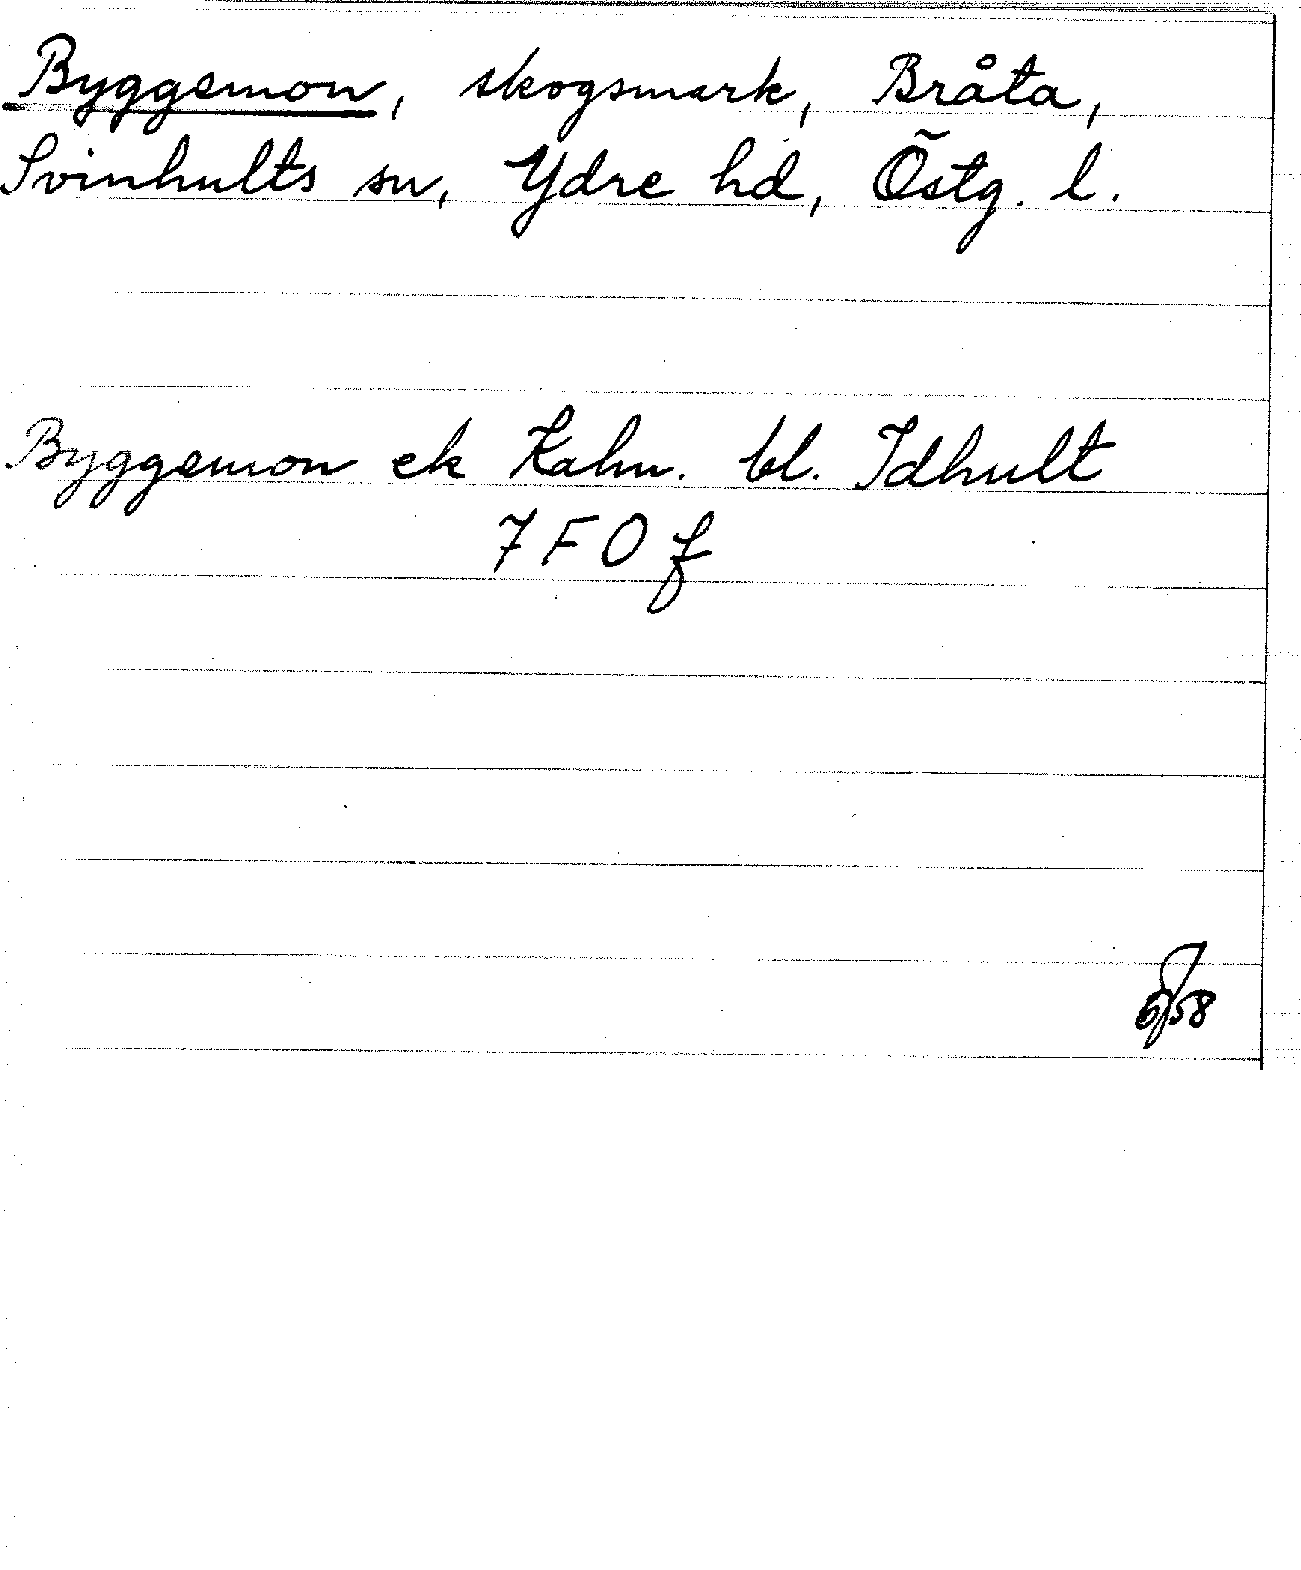 Byggemon, skogsmark, Bråta,
Svinhults sn, Ydre hd, Östg. l.
Byggemon ek Kahn. bl. Idhult
7 F O f
58